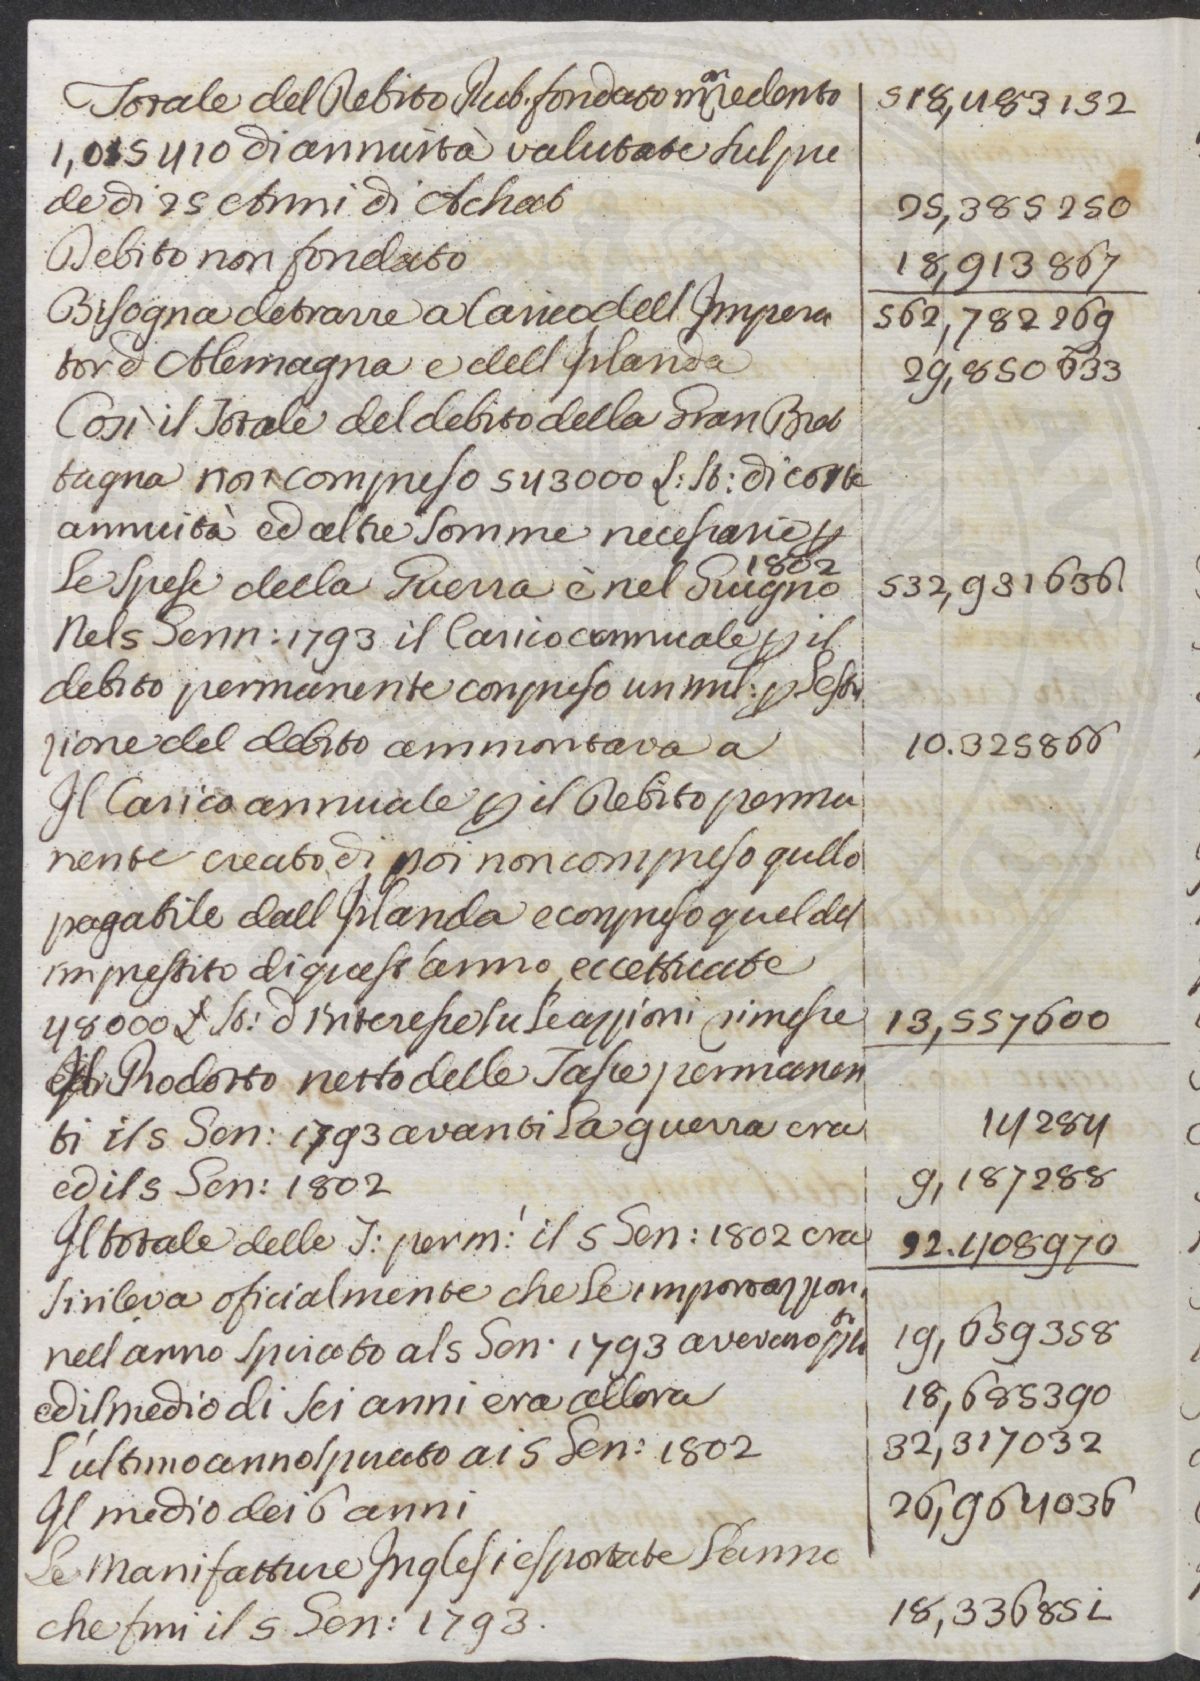 Totale del Debito Pub. fondato irredento 518,483152
1,015410 di annuità valutate sul pie
de di 25 Anni di Achat 25,385250
Debito non fondato 18,913867
Bisogna detrarre a Carico dell Impera 562,782269
tor d Alemagna e dell Irlanda 29,850633
Così il Totale del debito della Gran Bret
tagna non compreso 543000 L: St: di corte
annuità ed altre somme necessarie p
le spese della Guerra è nel Giugno 1802 532,931636
Nel 5 Genn: 1793 il Carico annuale p il
debito permanente compreso un mil: p l'estin
zione del debito ammontava a 10.325866
Il Carico annuale p il Debito perma
nente creato di poi non compreso qullo
pagabile dall Irlanda e compreso quel del
imprestito di quest'anno, eccettuate
48000 L St: d interesse su le azzioni rimesse 13,557600
Il Prodotto netto delle Tasse permanen
ti il 5 Gen: 1793 avanti la guerra era 14284
ed il 5 Gen: 1802 9,187288
Il totale delle T: perm: il 5 Gen: 1802 era 92.408970
Si rileva oficialmente che le importazzioni
nell anno spirato al 5 Gen. 1793 avevano 19,659358
ed il medio di sei anni era allora 18,685390
L'ultimo anno spirato ai 5 Gen: 1802 32,317032
Il medio dei 6 anni 26,964036
Le Manifatture Inglesi esportate l'anno
che finì il 5 Gen: 1793. 18,336851